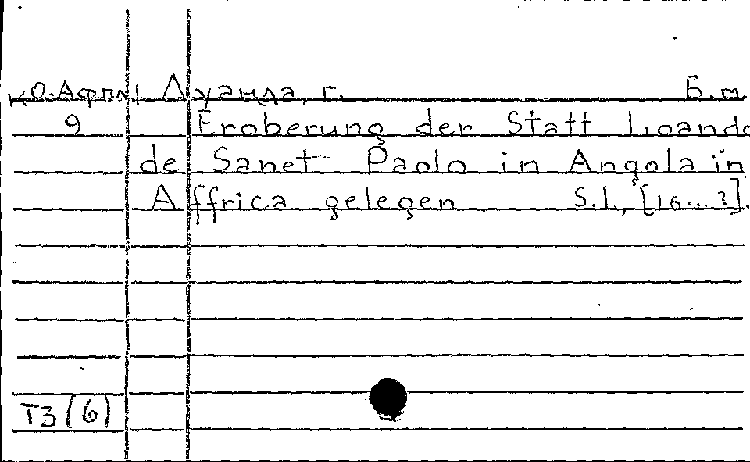 Луанда, г. Б.м.
9 Eroberung der Statt Loando
de Sanct Paolo in Angola in
Affrica gelegen S.l., [16...?].
T3(6)